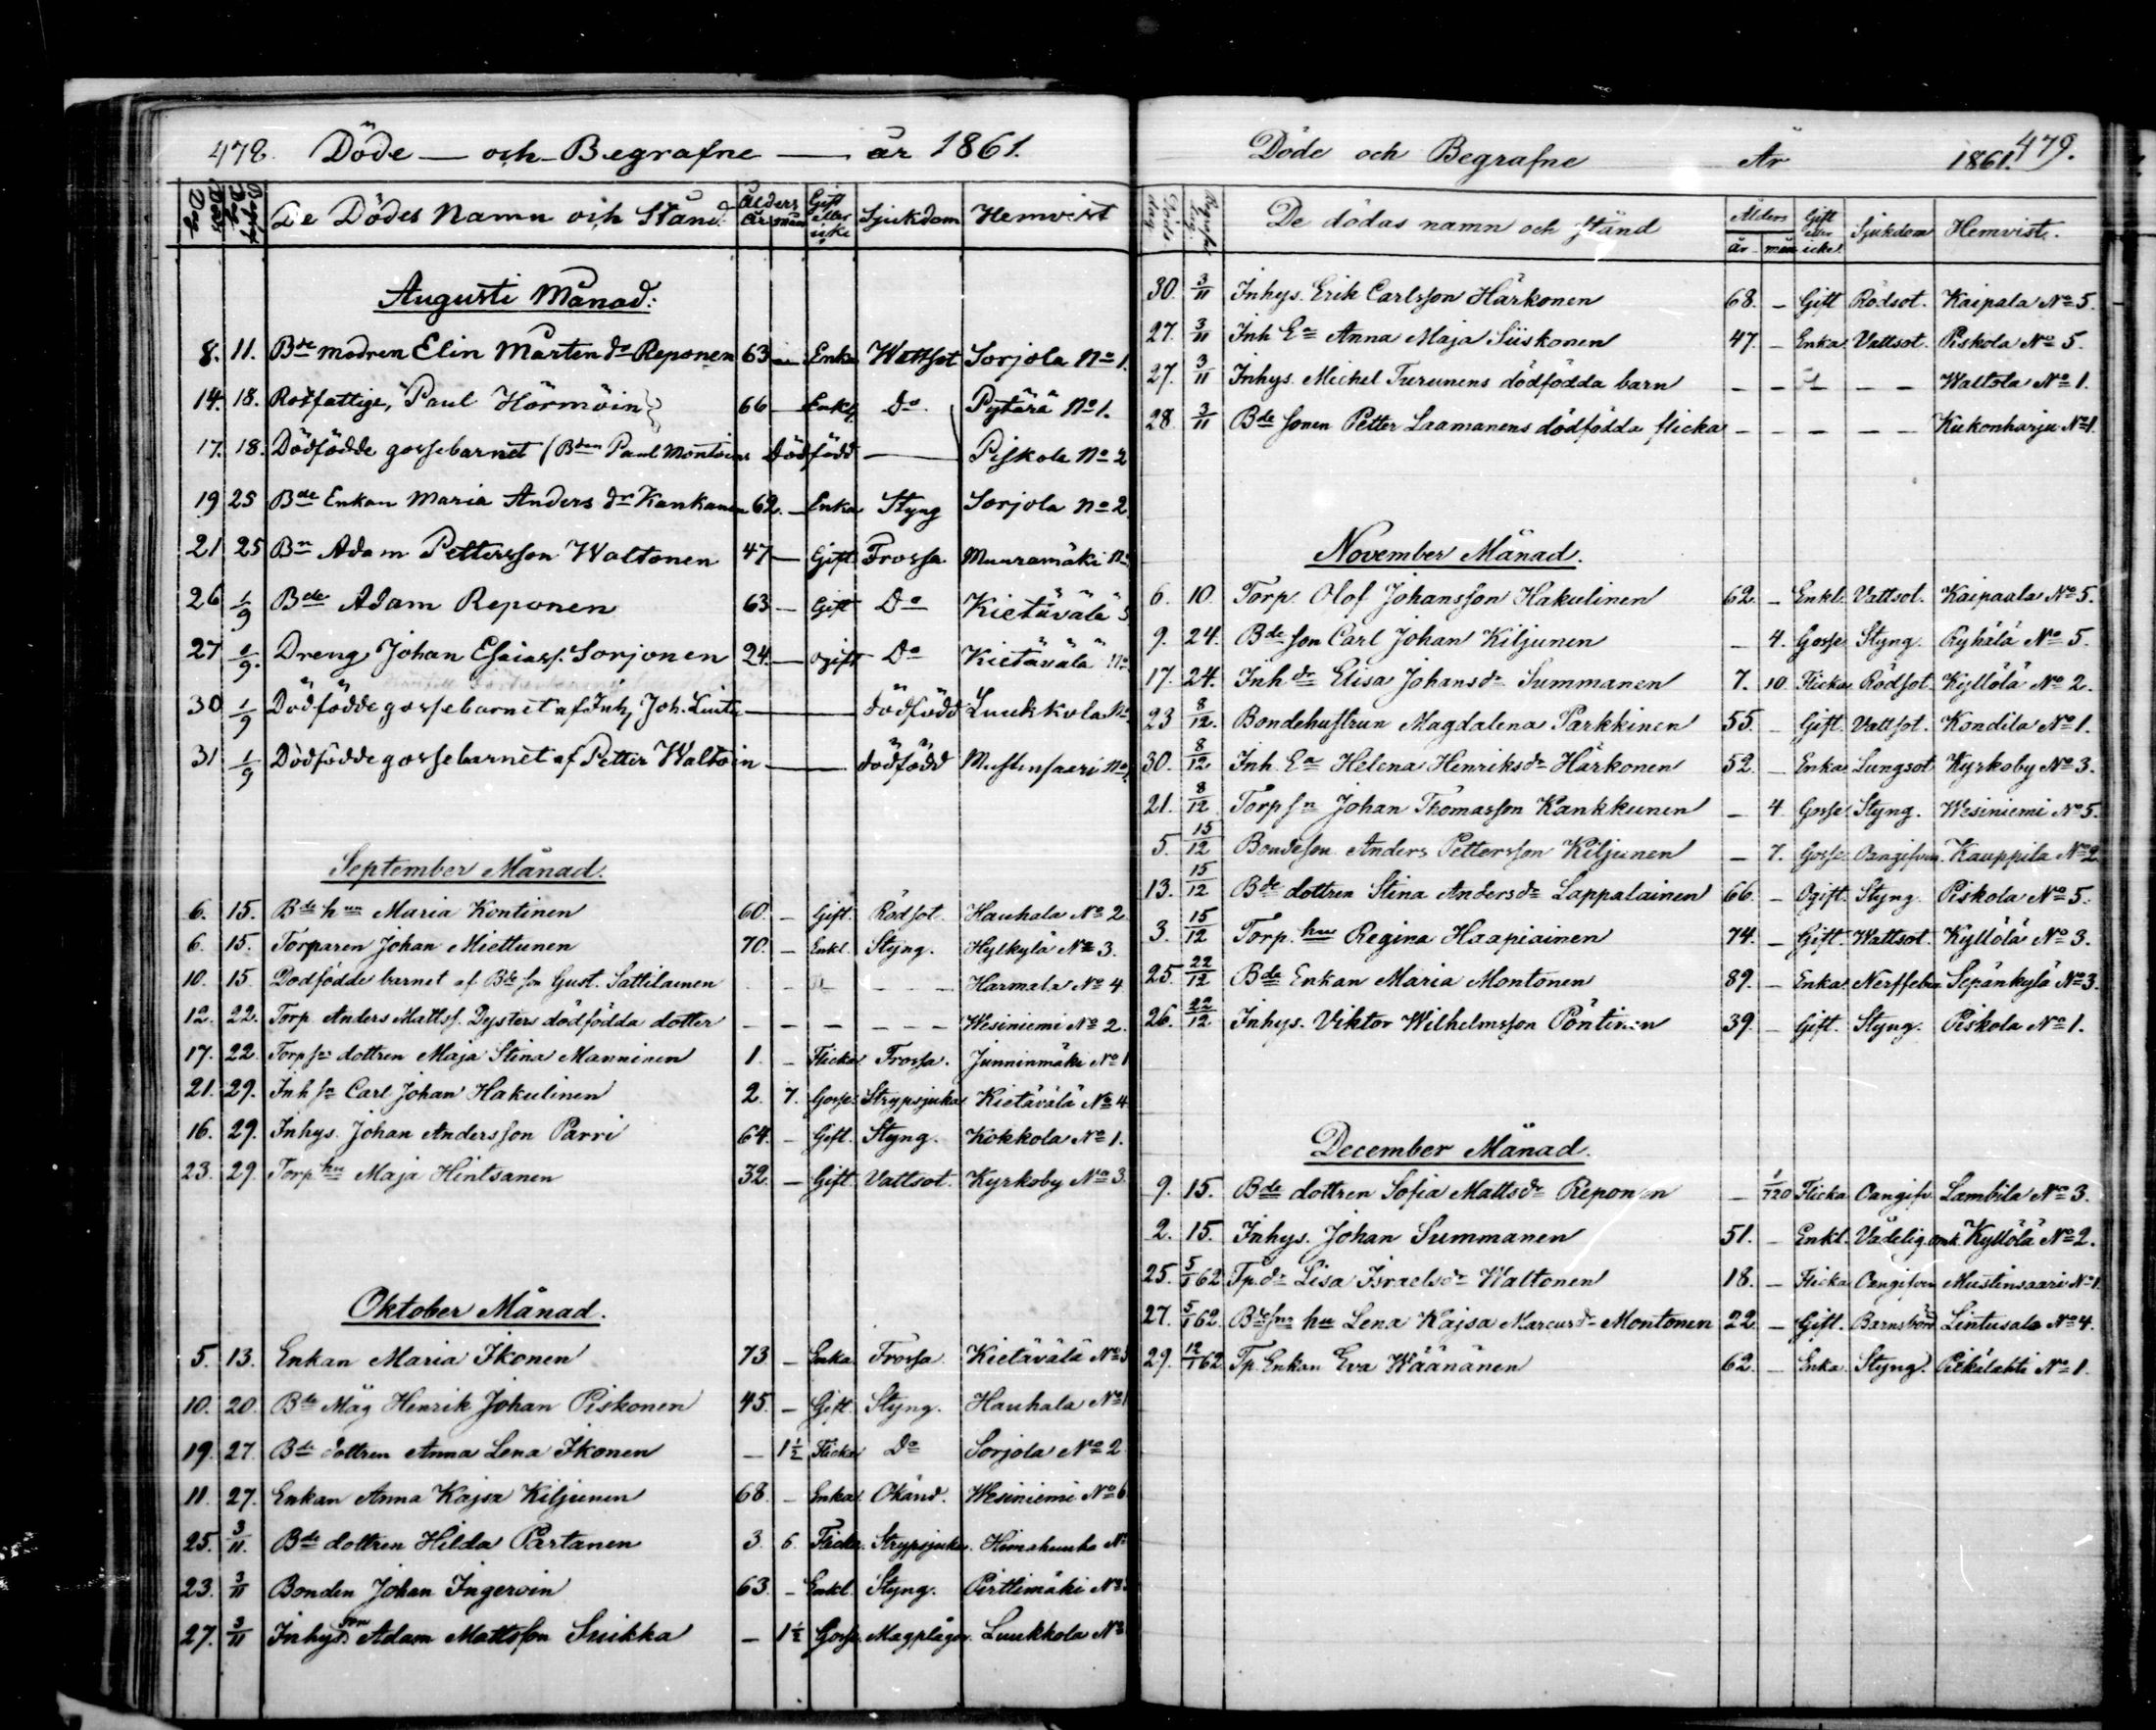 478. Döde — och Begrafne — år 1861.
Döds Dag Begrafn. Dag De Dödes Namn och Stånd Ålders år mån Gift eller icke Sjukdom Hemvist
Augusti Månad:
8. 11. Bde modren Elin Mårten dr Reponen 63 — Enka Wattsot Sorjola No 1.
14. 18. Rotfattige, Paul Hörmöin 66 — Enkl Do Pytärä No 1.
17. 18. Dödfödde gossebarnet (Bden Paul Montoins Dödfödd — Piskola No 2
19 25 Bde Enkan Maria Anders dr Kankanen 62. — Enka Styng Sorjola No 2
21 25 Bn Adam Pettersson Waltonen 47 — Gift Frossa Muuramäki No
26 1/9 Bde Adam Reponen 63 — Gift Do Kietäválä 5
27 1/9. Dreng Johan Esaiass. Sorjonen 24. — ogift Do Kietävälä No
30 1/9 Dödfödde gossebarnet af Inh, Joh. — dödfödd Luukkola No
31 1/9 Dödfödde gossebarnet af Petter Waltoin — dödfödd Mustinsaari No
September Månad.
6. 15. Bde hun Maria Kontinen 60. — Gift. Rödsot. Hauhala No 2.
6. 15. Torparen Johan Miettunen 70. — Enkl. Styng. Hylkylä No 3.
10. 15. Dödfödde barnet af Bde son Gust. Sattilainen - - - - - Harmala No 4
12. 22. Torp. Anders Mattss. Dysters dödfödda dotter — — — — — Wesiniemi No 2.
17. 22. Torp sn dottren Maja Stina Manninen 1. — Flicka Frossa. Junninmäki No 1
21. 29. Inh sn Carl Johan Hakulinen 2. 7. Gosse Strypsjuka Kietävälä No 4
16. 29. Inhys. Johan Andersson Parri 64. — Gift. Styng. Kokkola No 1.
23. 29. Torp hu Maja Hintsanen 32. — Gift Vattsot. Kyrkoby No 3.
Oktober Månad.
5. 13. Enkan Maria Ikonen 73. — Enka Frossa. Kietävälä No 5
10. 20. Bde Måg Henrik Johan Piskonen 45. — Gift. Styng. Hauhala No 1
19. 27. Bde dottren Anna Lena Ikonen — 1½ Flicka Do Sorjola No 2
11. 27. Enkan Anna Kajsa Kiljunen 68. — Enka Okänd. Wesiniemi No 6
25. 3/11. Bde dottren Hilda Partanen 3. 6. Flicka. Strypsjuka. No
23. 3/11 Bonden Johan Ingeroin 63. — Enkl. Styng. Pirttimäki No 3.
27. 3/11 Inhys son Adam Mattsson Suikka — 1½ Gosse Magplågor. Luukkola No
Döde och Begrafne År 1861. 479.
Döds dag Begrafn. dag. De dödas namn och stånd Ålders år mån Gift eller icke Sjukdom Hemvist.
30. 3/11 Inhys. Erik Carlsson Härkönen 68. — Gift Rödsot. Kaipala No 5.
27. 3/11 Inh Ea Anna Maja Siiskonen 47. — Enka Vattsot. Piskola No 5.
27. 3/11 Inhys. Michel Turunens dödfödda barn — — — — — Waltola No 1.
28. 3/11 Bde sonen Petter Laamanens dödfödda flicka — — — — — Kukonharju No 1.
November Månad.
6. 10. Torp. Olof Johansson Hakulinen 62. — Enkl. Vattsot. Kaipaala No 5.
9. 24. Bde son Carl Johan Kiljunen — 4. Gosse Styng. Ryhälä No 5.
17. 24. Inh dr Elisa Johansdr Summanen 7. 10 Flicka Rödsot. Kyllölä No 2.
23 8/12. Bondehustrun Magdalena Parkkinen 55. — Gift. Vattsot. Kondila No 1.
30. 8/12 Inh. Ea Helena Henriksdr Härkonen 52. — Enka Lungsot Kyrkoby No 3.
21. 8/12 Torp sn Johan Thomasson Kankkunen — 4 Gosse Styng. Wesiniemi No 5.
5. 15/12 Bondeson Anders Pettersson Kiljunen — 7. Gosse Oangifven. Kauppila No 2
13. 15/12 Bde dottren Stina Andersdr Lappalainen 66. — Ogift. Styng. Piskola No 5.
3. 15/12 Torp. hu Regina Haapiainen 74. — Gift. Wattsot. Kyllölä No 3.
25. 22/12 Bde Enkan Maria Montonen 89. — Enka Nerffeber Sepänkylä No 3.
26. 22/12 Inhys. Viktor Wilhelmsson Pöntinen 39. — Gift. Styng. Piskola No 1.
December Månad.
9. 15. Bde dottren Sofia Mattsdr Reponen — 1/720 Flicka Oangifv. Lambila No 3.
2. 15. Inhys. Johan Summanen 51. — Enkl. Vådelig. Kyllölä No 2.
25. 5/1 62 Tp. dr Lisa Israelsdr Waltonen 18. — Flicka Oangifven Mustinsaari No 1.
27. 5/1 62. Bde sns hu Lena Kajsa Marcusdr Montonen 22. — Gift. Barnsbörd Lintusalo No 4.
29. 12/1 62 Tp. Enkan Eva Wäänänen 62. — Enka. Styng. Piskilahti No 1.